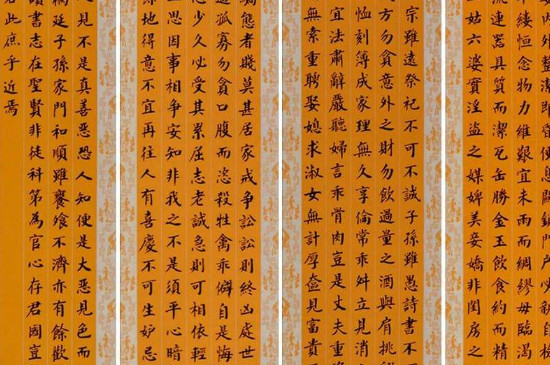 內外整潔既昏便息關鎖門戶必
縷恆念物力維艱宜未雨而綢繆毋臨渴
流連器具質而潔瓦缶勝金玉飲食約而精
姑六婆實淫盜之媒婢美妾嬌非閨房之
宗雖遠祭祀不可不誠子孫雖愚詩書不
方勿貪意外之財勿飲過量之酒與肩挑
恤刻薄成家理無久享倫常乖舛立見消
宜法肅辭嚴聽婦言乖骨肉豈是丈夫重
無索重聘娶媳求淑女無計厚奩見富貴
驕態者賤莫甚居家戒爭訟訟則終凶處世
逼孤寡勿貪口腹而恣殺牲禽乖僻自是悔
少久必受其累屈志老誠急則可相依輕
思因事相爭安知非我之不是須平心暗
地得意不宜再往人有喜慶不可生妒忌
見不是真善惡恐人知便是大惡見色而
禍延子孫家門和順雖饔飧不濟亦有餘歡
讀書志在聖賢非徒科第為官心存君國豈
若此庶乎近焉